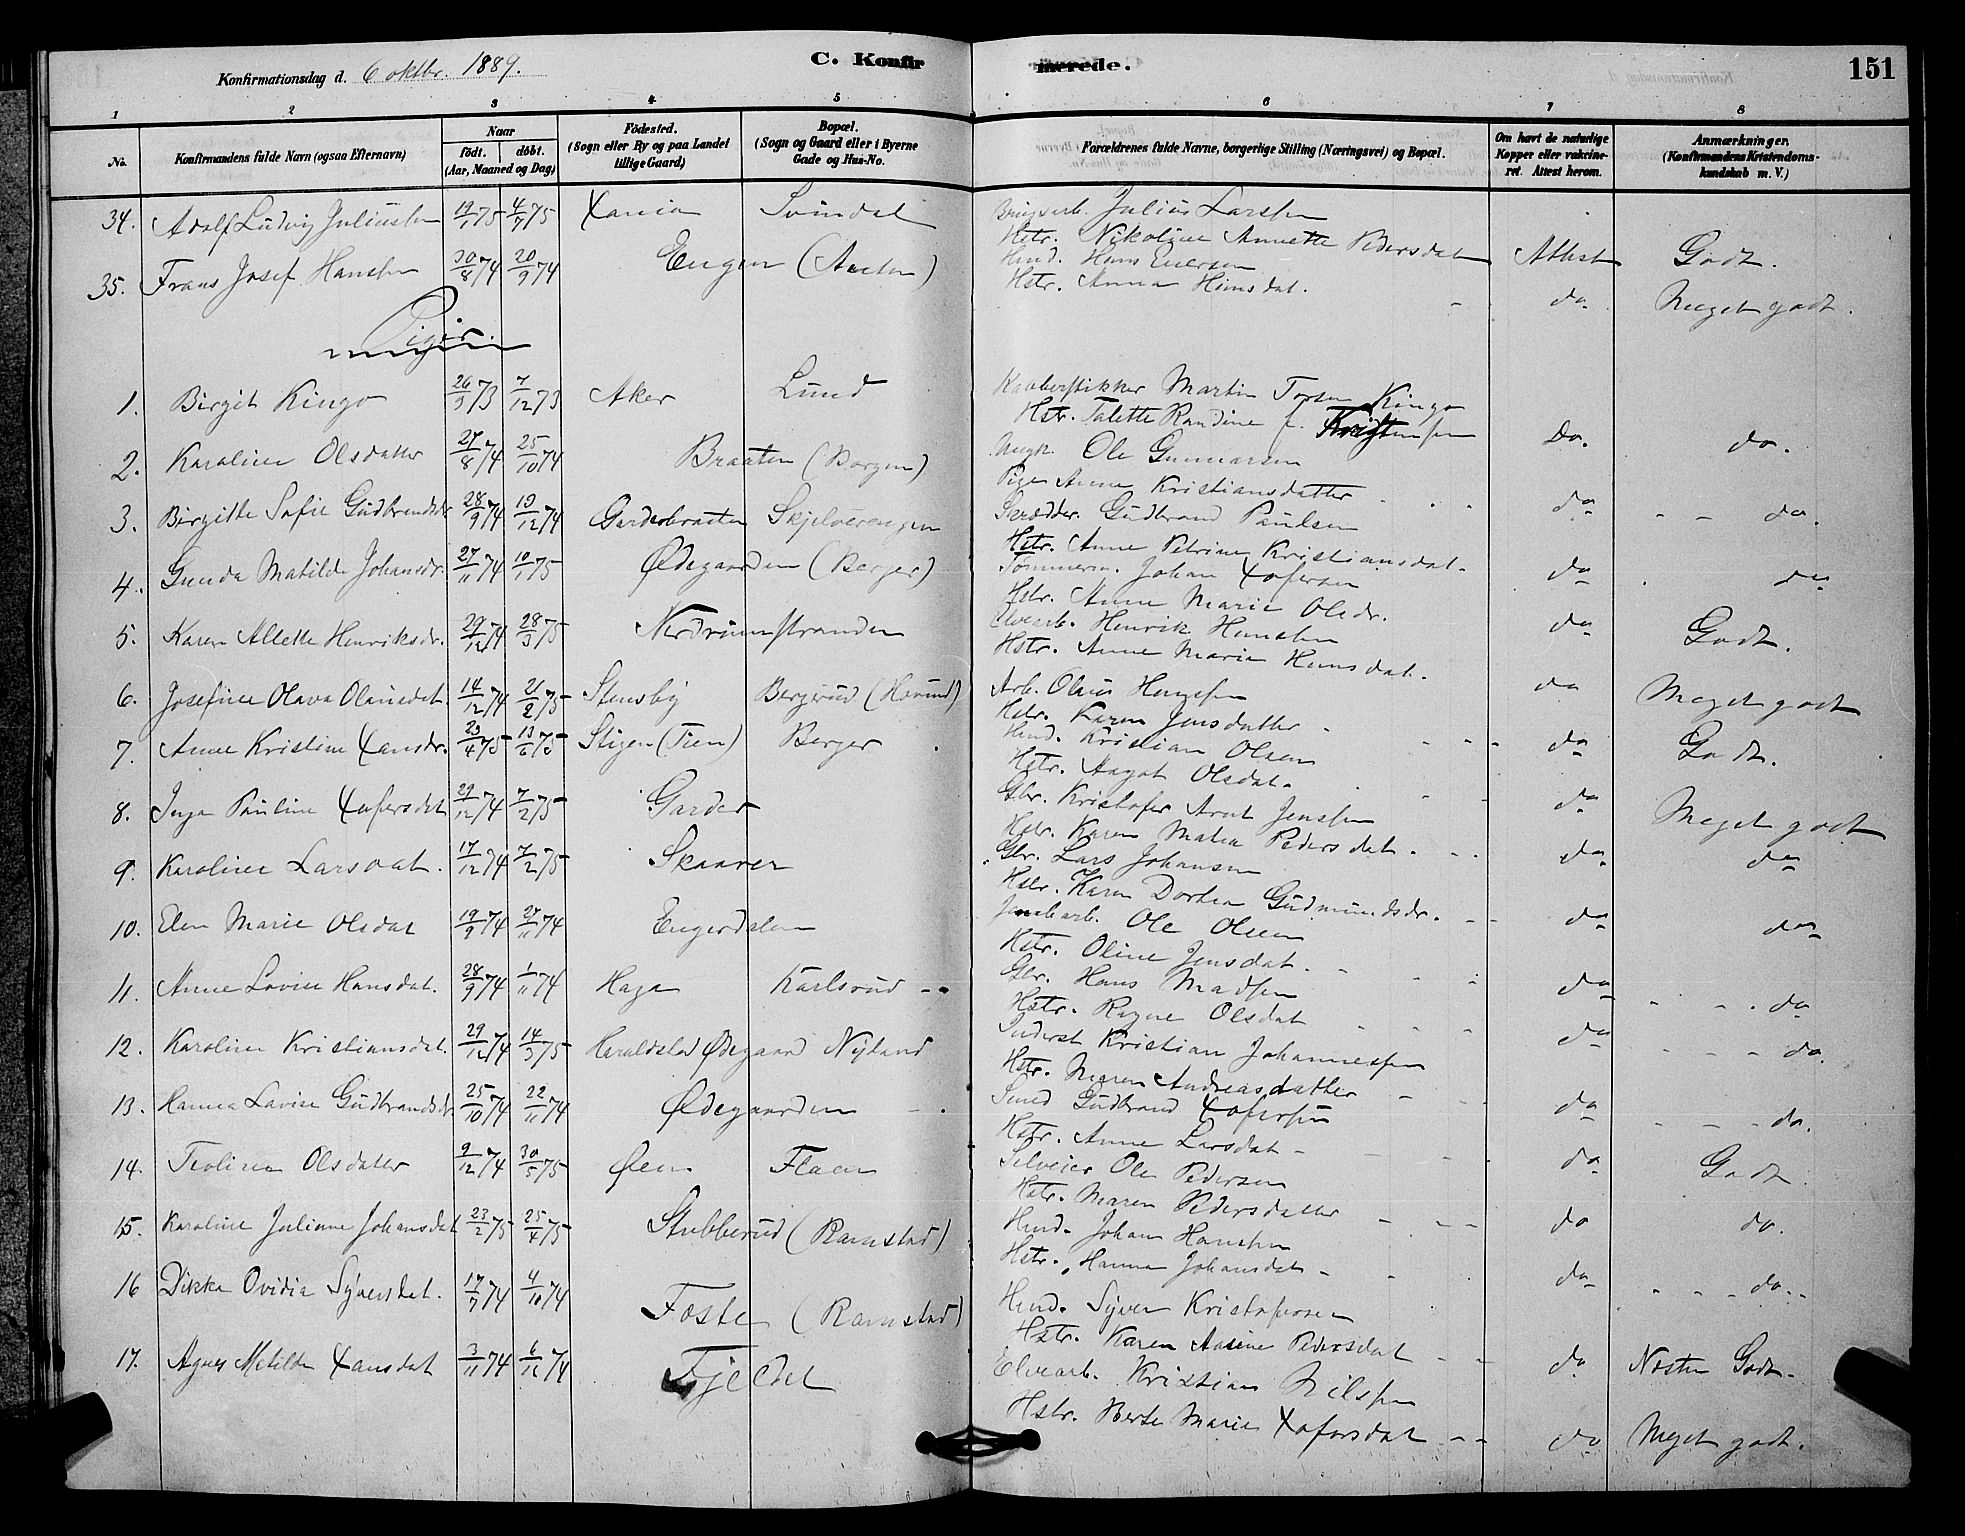 Konfirmationsdag d. 6 oktbr. 1889.
C. Konfirmerede.
151
1 2 3 4 5 6 7 8
No. Konfirmandens fulde Navn (ogsaa Efternavn) Naar født. døbt. (Aar, Maaned og Dag) Fødested. (Sogn eller By og paa Landet tillige Gaard) Bopæl. (Sogn og Gaard eller i Byerne Gade og Hus-No. Forældrenes fulde Navne, borgerlige Stilling (Næringsvei) og Bopæl. Om havt de naturlige Kopper eller vakcineret. Attest herom. Anmærkninger. (Konfirmandens Kristendomskundskab m. V.)
34. Adolf Ludvig Juliussen 19/1 75 4/7 75 Xania Svindal Brugsarb. Julius Larssen
Hstr. Nikoline Annette Pedersdat Attest Godt.
35. Frans Josef Hanssen 30/8 74 20/9 74 Engen (Austen) Hmd. Hans Evensen
Hstr. Anna Hansdat. do Meget godt.
Piger.
1. Birgit Kingo 26/9 73 7/12 73 Aker Lund Kobberstikker Martin Torsen Kingo
Hstr. Talette Randine f. Kristensen Do. do.
2. Karoline Olsdatter 27/8 74 25/10 74 Braaten (Borgen) Ungk. Ole Gunnarsen
Pige Anne Kristiansdatter do do.
3. Birgitte Sofie Gudbrandsdr 28/9 74 19/12 74 Garderbraaten Skjelverengen Skrædder. Gudbrand Paulsen
Hstr. Anne Petrine Kristiansdat. do do
4. Gunda Matilde Johansdr. 27/11 74 10/1 75 Ødegaarden (Berger) Tømmerm. Johan Xofersen
Hstr. Anne Marie Olsdr. do Godt.
5. Karen Allette Henriksdr. 29/12 74 28/3 75 Nerdrumstranden Elvearb. Henrik Hansen
Hstr. Anne Marie Hansdat. do Meget godt
6. Josefine Olava Olausdat 14/12 74 21/2 75 Stensby Bergerud (Hovind) Arb. Olaus Hansen
Hstr. Karen Jensdatter do Godt.
7. Anne Kristine Xansdr. 23/4 75 13/6 75 Stigen (Tien) Berger Hmd. Kristian Olsen
Hstr. Aagot Olsdat. do Meget godt
8. Inga Pauline Xofersdat 29/12 74 7/2 75 Garder Gbr. Kristofer Arnt Jenssen
Hstr. Karen Matea Pedersdat. do do
9. Karoline Larsdat. 17/12 74 7/2 75 Skaarer Gbr. Lars Johansen
Hstr. Karen Dortea Gudmundsdr. do do
10. Elen Marie Olsdat 19/9 74 27/11 74 Engerdalen Jernbarb. Ole Olsen
Hstr. Oline Jensdat. do do
11. Anne Lovise Hansdat. 28/9 74 1/11 74 Haga Karlsrud Gbr. Hans Madsen
Hstr. Ragne Olsdat do do.
12. Karoline Kristiansdat. 29/12 74 14/3 75 Haraldstad Ødegaard Nyland Inderst Kristian Johannessen
Hstr. Maren Andreasdatter do do.
13. Hanna Lovise Gudbrandsdr. 25/10 74 22/11 74 Ødegaarden Smed Gudbrand Xofersen
Hstr. Anne Larsdat do Godt
14. Teoline Olsdatter 9/12 74 30/5 75 Øen Flaen Selveier Ole Pedersen
Hstr. Maren Pedersdatter do do.
15. Karoline Juliane Johansdat 23/2 75 25/4 75 Stubberud (Ramstad) Hmd. Johan Hanssen
Hstr. Hanna Johansdat do do.
16 Dikka Ovidia Syversdat. 17/7 74 4/10 74 Foste (Ramstad) Hmd. Syver Kristofersen
Hstr. Karen Aasine Pedersdat do Næsten Godt.
17. Agnes Metilde Xansdat 3/11 74 6/12 74 Fjeldet Elvearb. Kristian Nilssen
Hstr. Berte Marie Xofersdat do Meget godt.